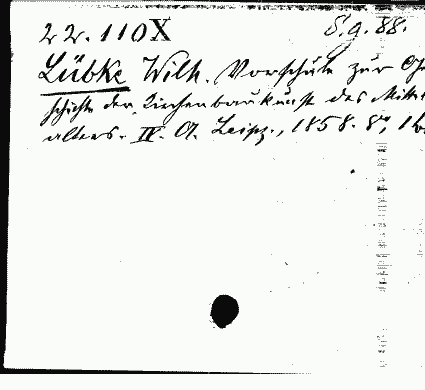 22.110X S.g.88.
Lübke Wilh. Vorschule zur Ge
schichte der Kirchenbaukunst des Mittel
alters. IV. A. Leipz., 1858. 8°, 1